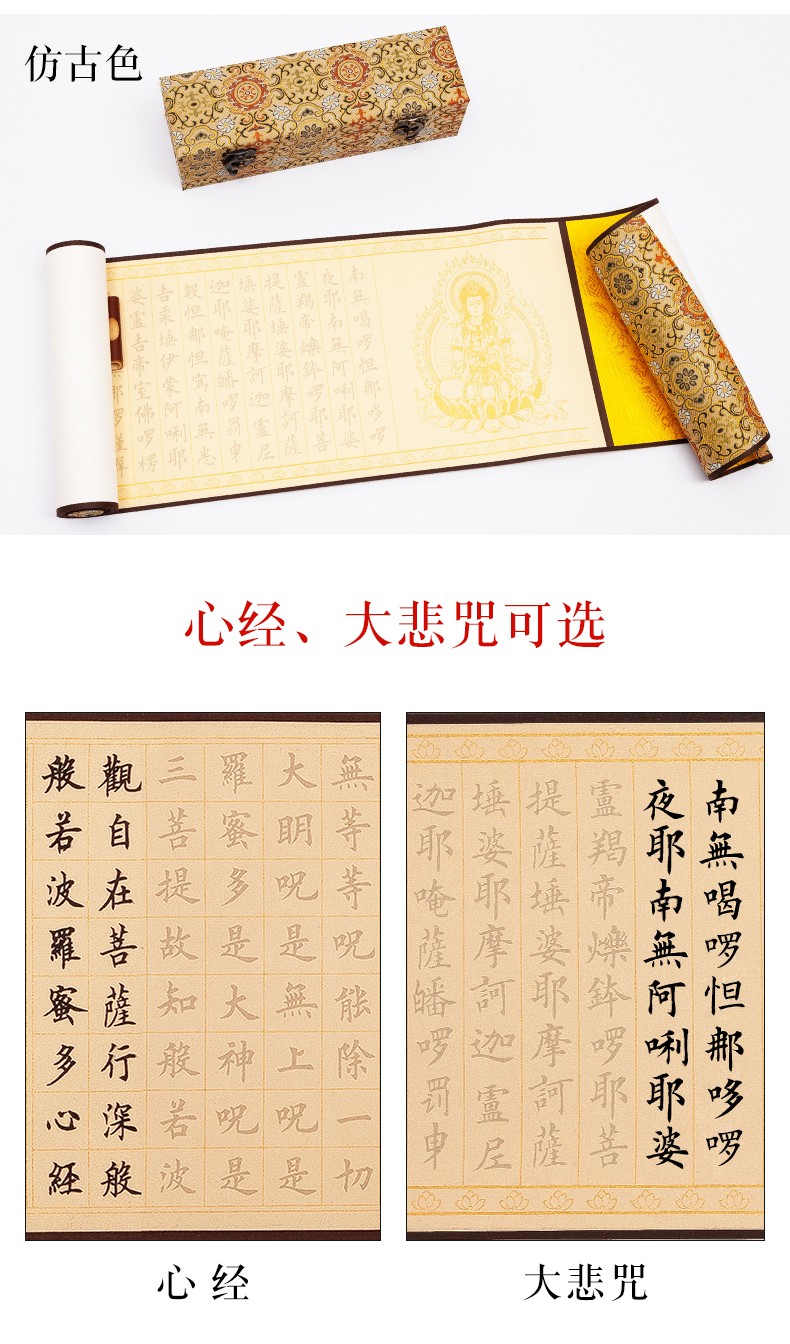 仿古色
南無喝啰怛那哆啰
夜耶南無阿唎耶婆
盧羯帝爍鉢啰耶菩
提薩埵婆耶摩訶薩
埵婆耶摩訶迦盧尼
迦耶唵薩皤啰罰曳
數怛那怛寫南無悉
吉栗埵伊蒙阿唎耶
婆盧吉帝室佛啰楞
心经、大悲咒可选
無等等呪能除一切
大明呪是無上呪是
羅蜜多是大神呪是
三菩提故知般若波
觀自在菩薩行深般
般若波羅蜜多心經
心经
南無喝啰怛那哆啰
夜耶南無阿唎耶婆
盧羯帝爍鉢啰耶菩
提薩埵婆耶摩訶薩
埵婆耶摩訶迦盧尼
迦耶唵薩皤啰罰曳
大悲咒